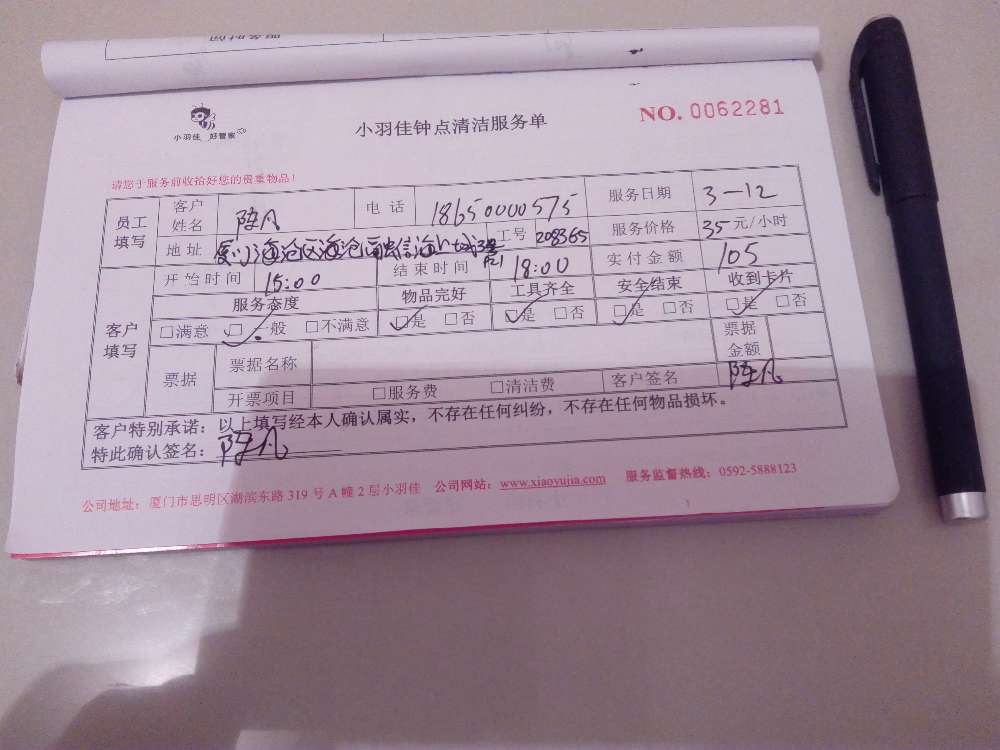 小羽佳 好管家
小羽佳钟点清洁服务单
NO. 0062281
请您于服务前收拾好您的贵重物品！
员工填写 客户姓名 陈凡 电话 18650000575 服务日期 3-12
地址 厦门海沧区海沧 信海上城 工号 208365 服务价格 35元/小时
客户填写 开始时间 15:00 结束时间 18:00 实付金额 105
服务态度 物品完好 工具齐全 安全结束 收到卡片
□满意 □一般 □不满意 □是 □否 □是 □否 □是 □否 □是 □否
票据 票据名称 票据金额
开票项目 □服务费 □清洁费 客户签名 陈凡
客户特别承诺：以上填写经本人确认属实，不存在任何纠纷，不存在任何物品损坏。
特此确认签名：陈凡
公司地址：厦门市思明区湖滨东路319号A幢2层小羽佳 公司网站：www.xiaoyujia.com 服务监督热线：0592-5888123